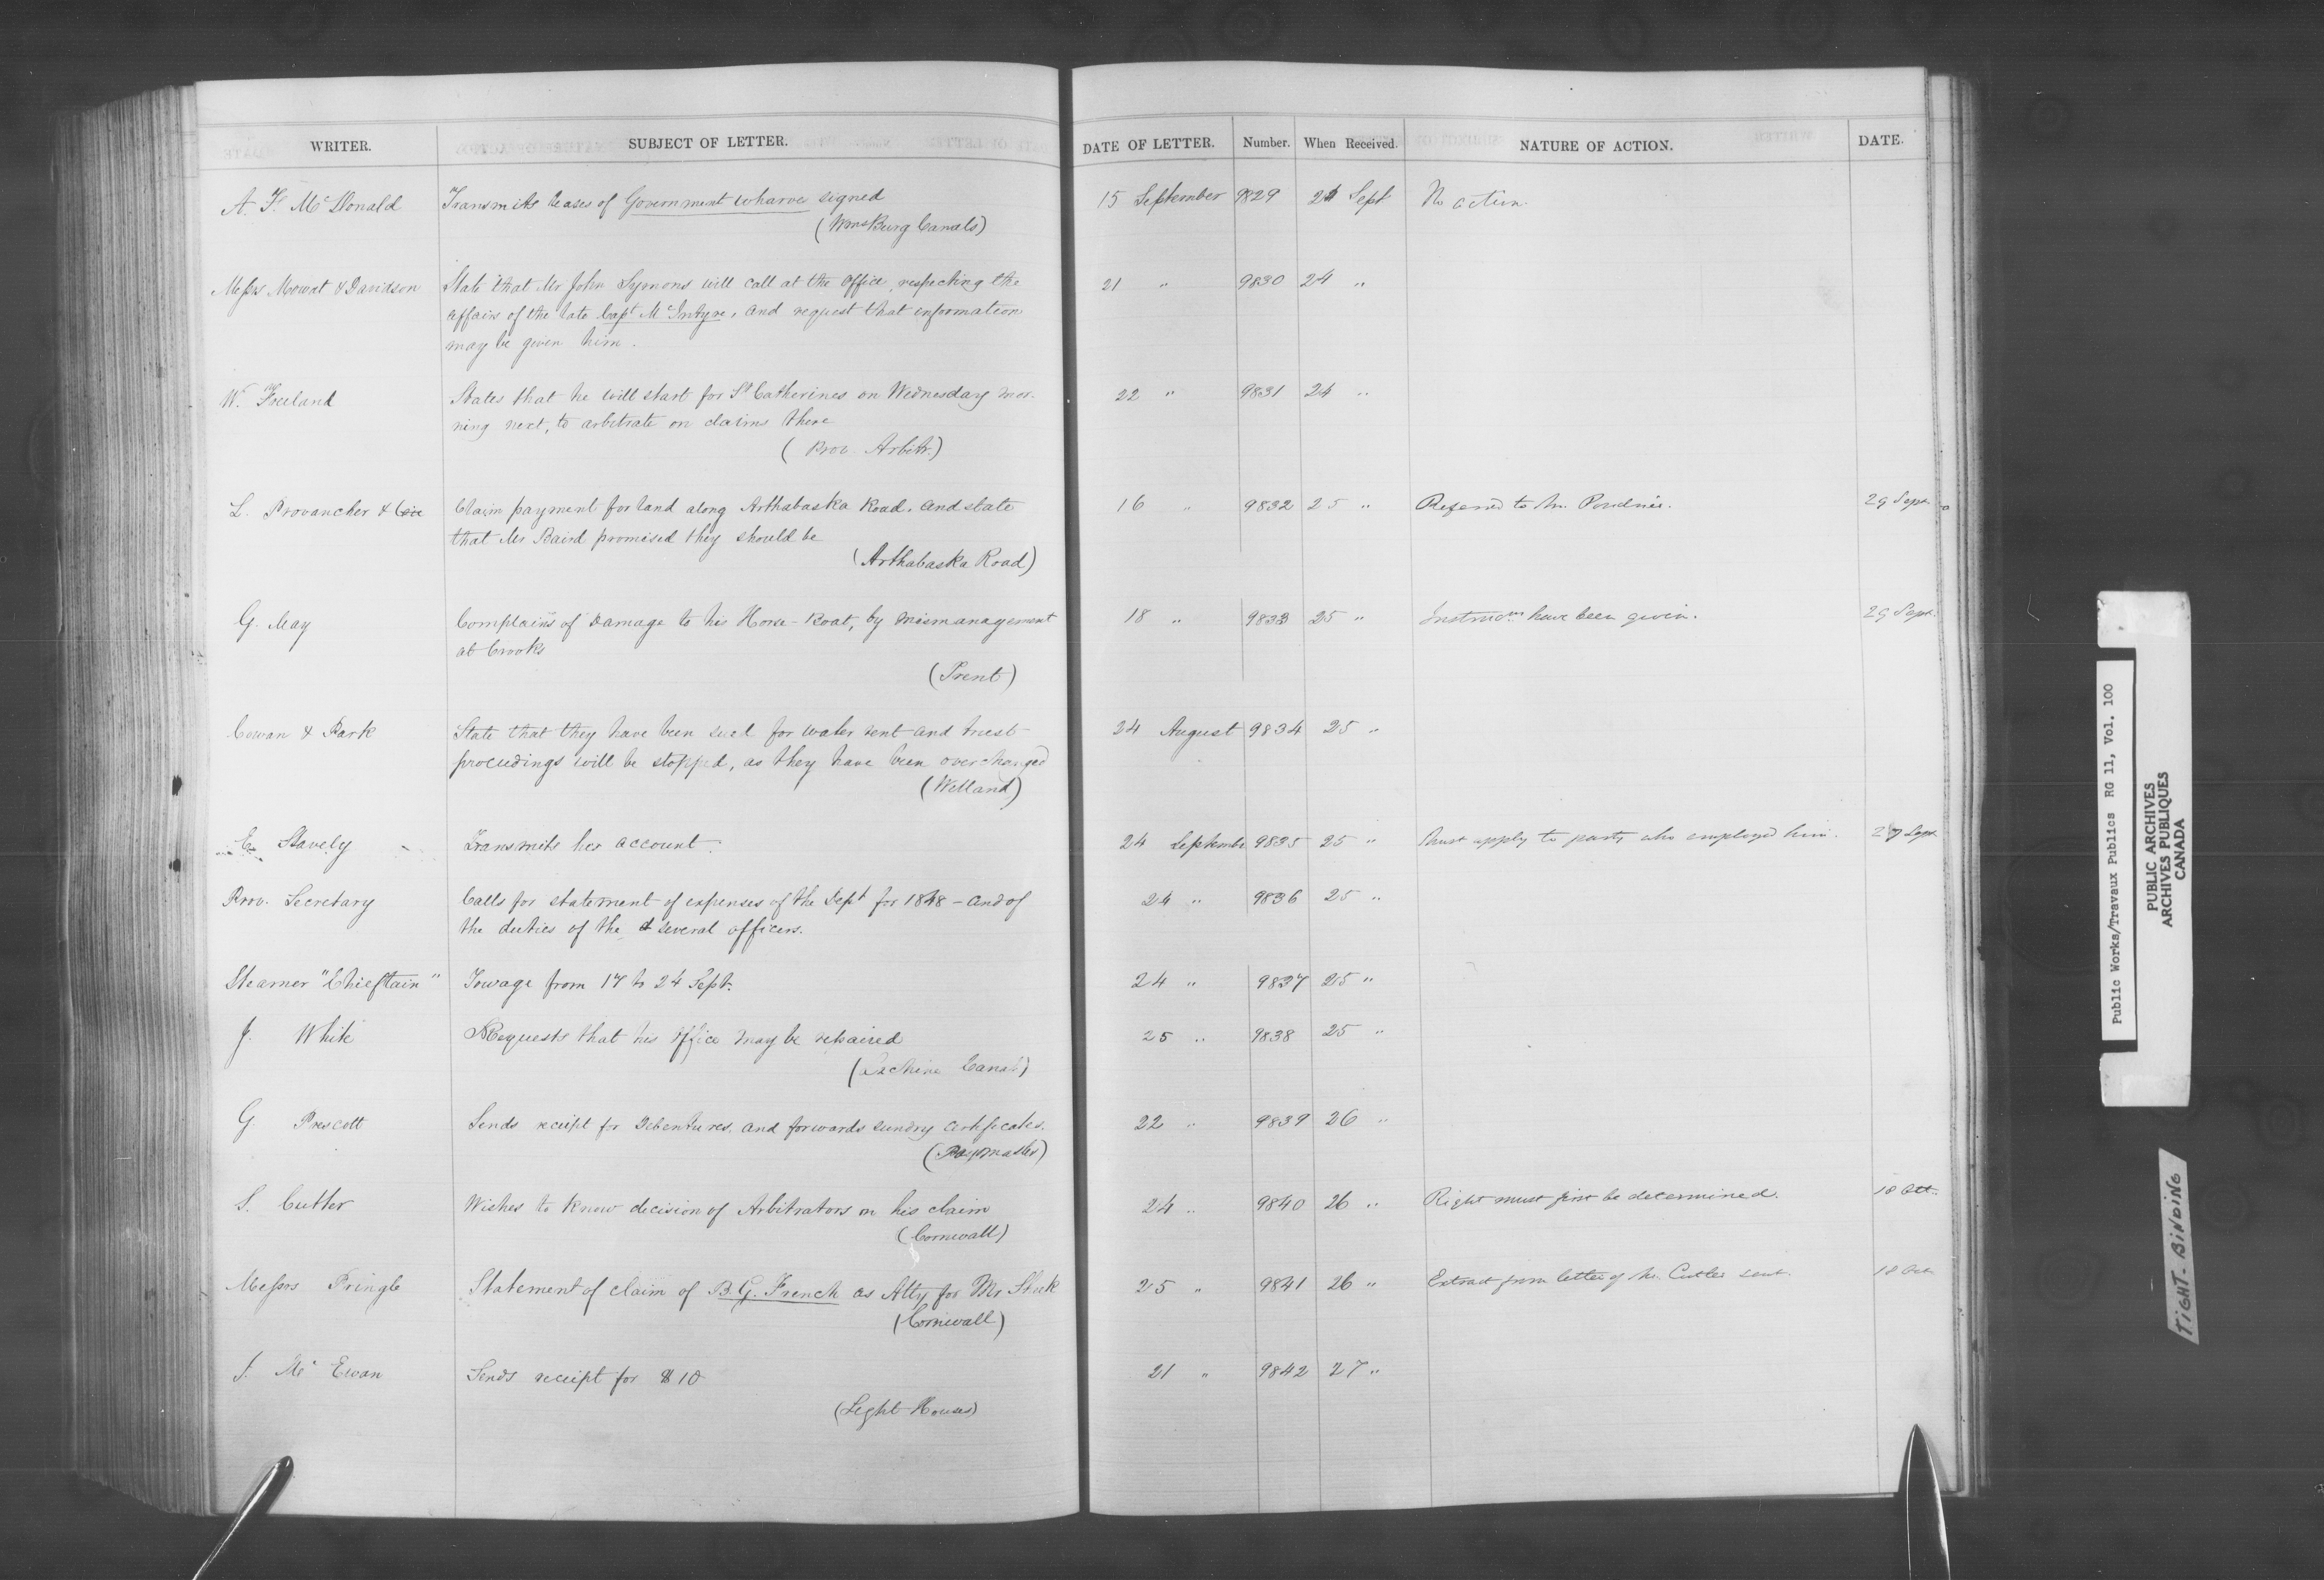 WRITER. SUBJECT OF LETTER. DATE OF LETTER. Number. When Received. NATURE OF ACTION. DATE.
A. F. McDonald Transmits leases of Government wharve signed 15 September 9829 24 Sept No action.
(Wmsburg Canals)
Messrs Mowat & Davidson State that Mr John Symons will call at the office, respecting the 21 " 9830 24 "
affairs of the late Capt McIntyre, and request that information
may be given him.
W. Freeland States that he will start for St Catherines on Wednesday mor- 22 " 9831 24 "
ning next, to arbitrate on claims there
(Prov. Arbitr.)
L. Provancher & Claim payment for land along Arthabaska Road. and state 16 " 9832 25 " Referred to Mr. 29 Sept
that Mr Baird promised they should be
(Arthabaska Road)
G. May Complains of Damage to his Horse-Boat, by mismanagement 18 " 9833 25 " Instructns have been given. 29 Sept.
at Crooks
(Trent)
Cowan & Park State that they have been sued for water rent and trust 24 August 9834 25 "
proceedings will be stopped, as they have been overcharged
(Welland)
E. Stavely Transmits his account. 24 Septembe 9835 25 " Must apply to party who employed him. 27 Sept
Prov. Secretary Calls for statement of expenses of the Dept for 1848 - and of 24 " 9836 25 "
the duties of the several officers.
Steamer "Chieftain" Towage from 17 to 24 Sept. 24 " 9837 25 "
J. White Requests that his office may be repaired 25 " 9838 25 "
(Lachine Canal)
G. Prescott Sends receipt for Debentures. and forwards sundry certificates. 22 " 9839 26 "
(Paymaster)
S. Cutler Wishes to know decision of Arbitrators on his claim 24 " 9840 26 " Right must first be determined. 18 Oct.
(Cornwall)
Messrs Pringle Statement of claim of B. G. French as Atty for Mr 25 " 9841 26 " Extract from letter of Mr. Cutler sent. 18 Oct
(Cornwall)
J. McEwan Sends receipt for $10 21 " 9842 27 "
(Light Houses)
Public Works/Travaux Publics RG 11, Vol. 100
PUBLIC ARCHIVES
ARCHIVES PUBLIQUES
CANADA
TIGHT-BINDING